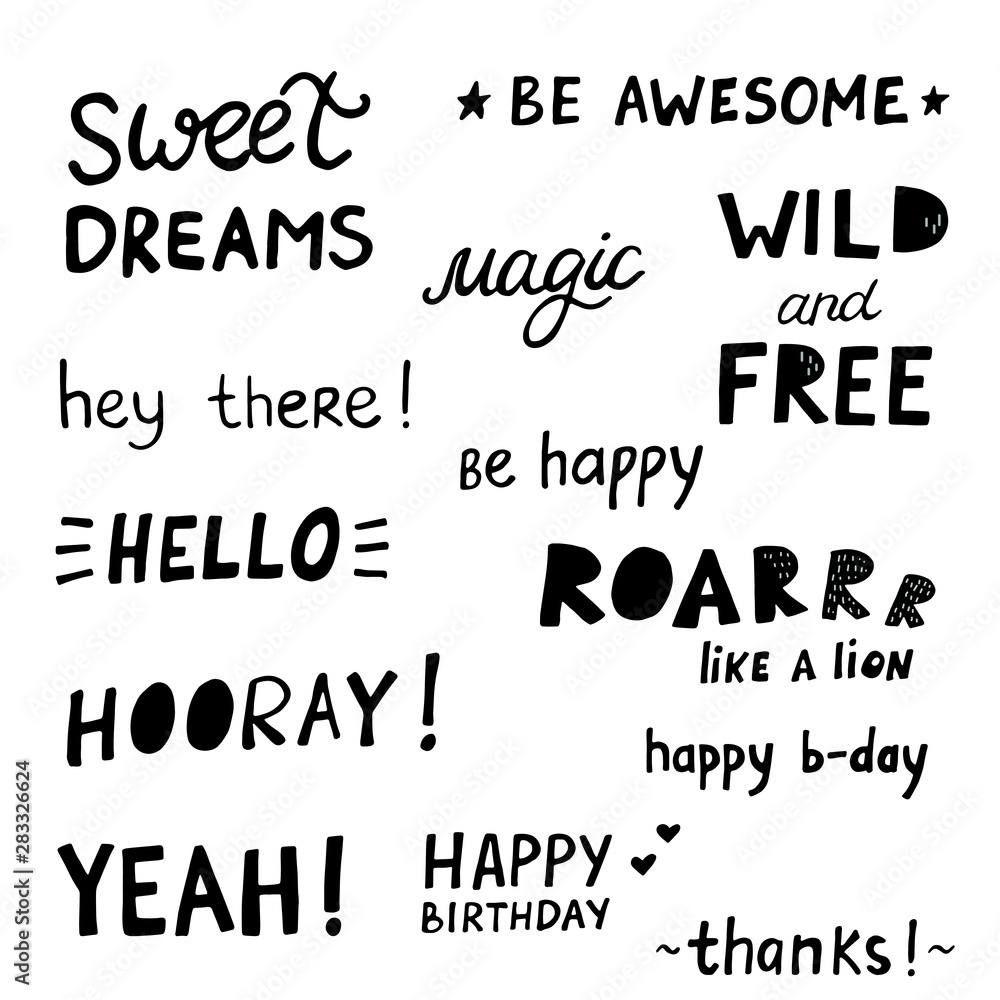 Sweet
DREAMS
★ BE AWESOME ★
WILD
and
FREE
magic
hey there!
Be happy
HELLO
ROARRR
LIKE A LION
HOORAY!
happy b-day
YEAH!
HAPPY
BIRTHDAY
~thanks!~
Adobe Stock | #283326624